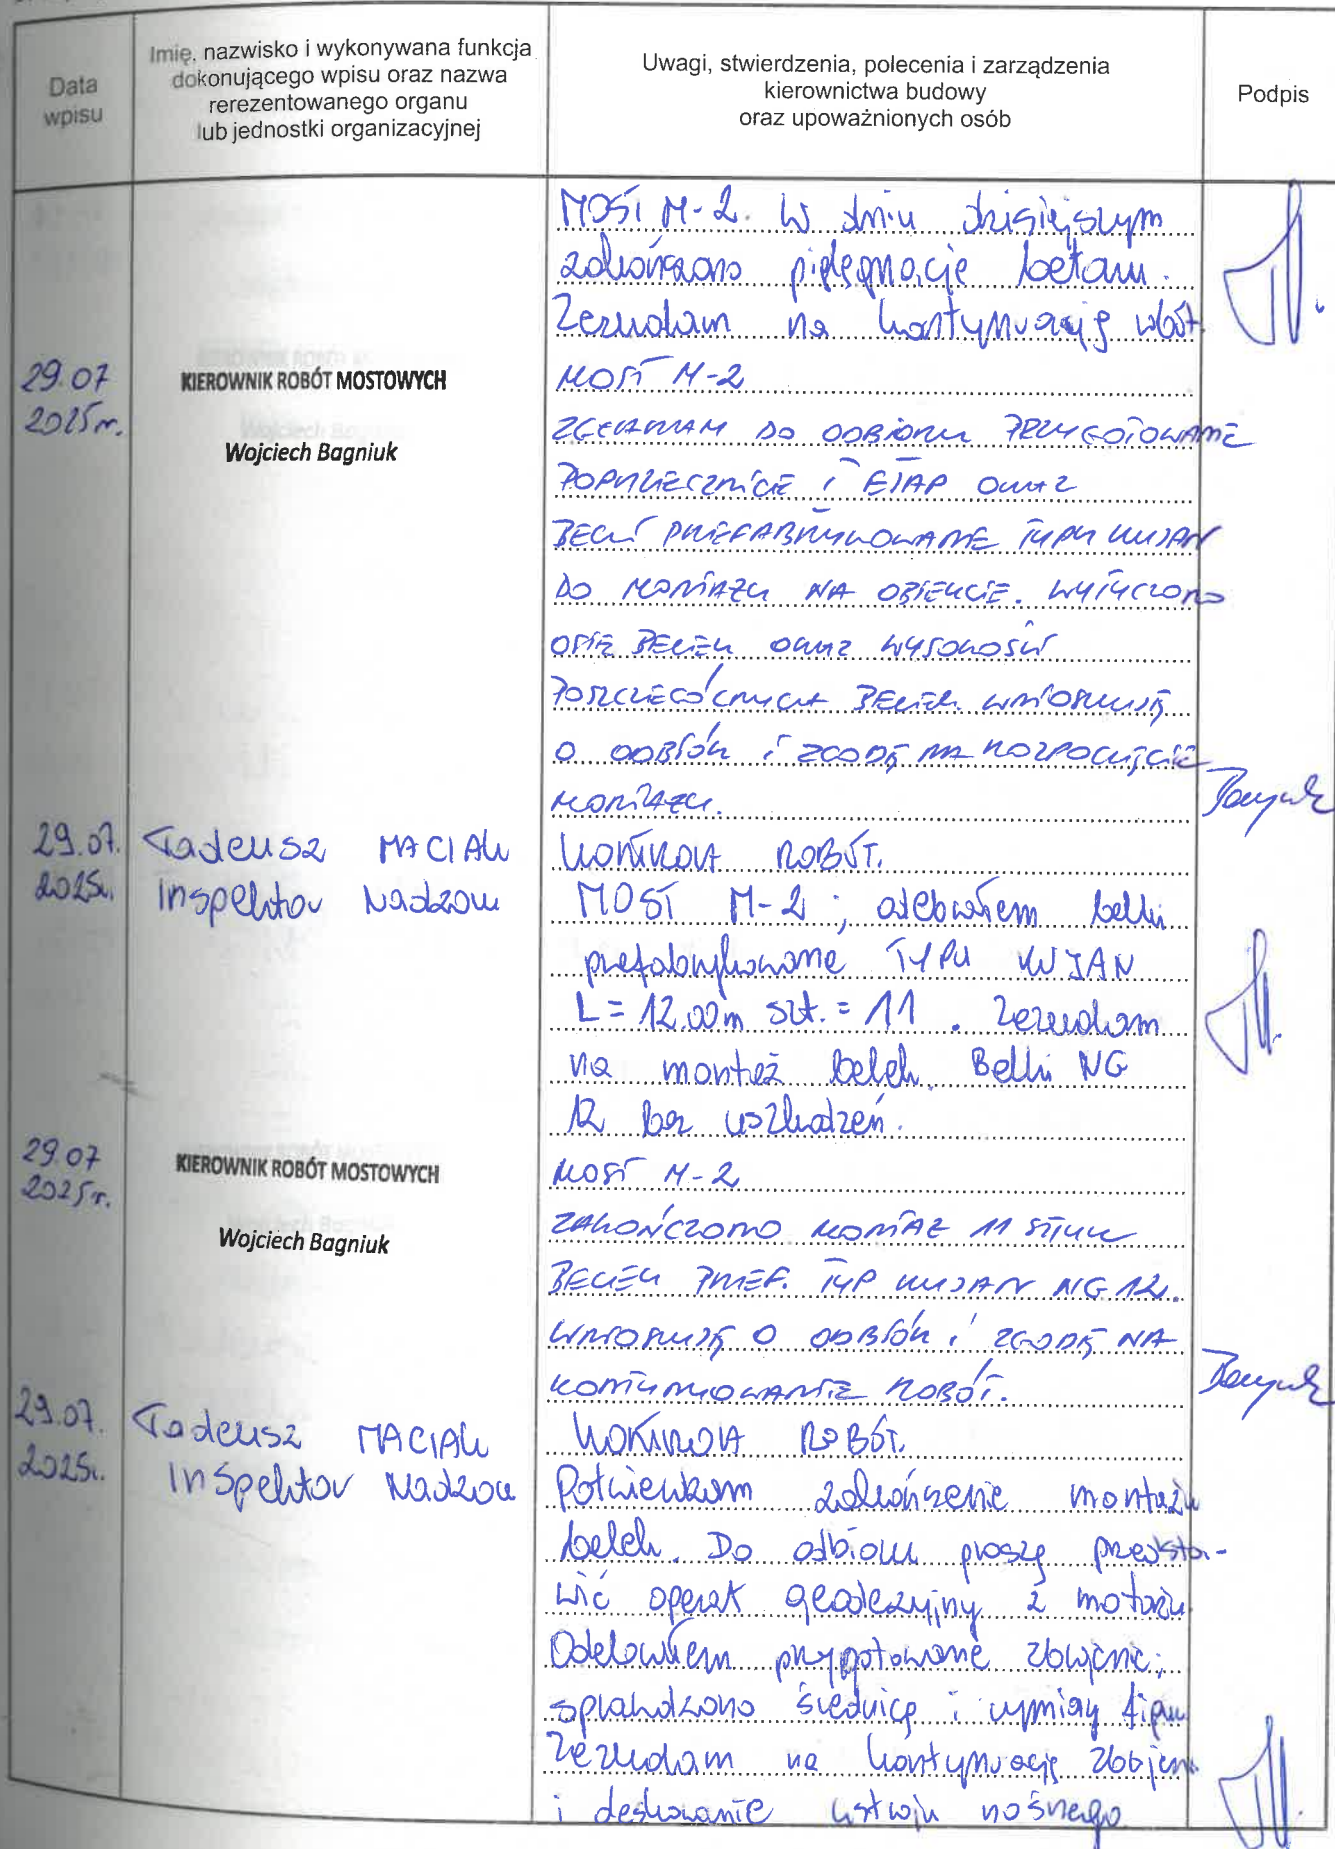 Data
wpisu
Imię, nazwisko i wykonywana funkcja
dokonującego wpisu oraz nazwa
rerezentowanego organu
lub jednostki organizacyjnej
Uwagi, stwierdzenia, polecenia i zarządzenia
kierownictwa budowy
oraz upoważnionych osób
Podpis
MOST M-2. W dniu dzisiejszym
zakończono pielęgnację betonu.
Zezwalam na kontynuację robót.
29.07
2025r.
KIEROWNIK ROBÓT MOSTOWYCH
Wojciech Bagniuk
MOST M-2
ZGŁASZAM DO ODBIORU PRZYGOTOWANE
POPRZECZNICE I ETAP ORAZ
BELKI PREFABRYKOWANE TYPU KUJAN
DO MONTAŻU NA OBIEKCIE. WYTYCZONO
OSIE BELEK ORAZ WYSOKOŚCI
POSZCZEGÓLNYCH BELEK. WNIOSKUJĘ
O ODBIÓR I ZGODĘ NA ROZPOCZĘCIE
MONTAŻU.
29.07.
2025r.
Tadeusz MACIAK
Inspektor Nadzoru
KONTROLA ROBÓT.
MOST M-2; odebrałem belki
prefabrykowane TYPU KUJAN
L = 12.00m szt. = 11. Zezwalam
na montaż belek. Belki NG
12 bez uszkodzeń.
29.07
2025r.
KIEROWNIK ROBÓT MOSTOWYCH
Wojciech Bagniuk
MOST M-2
ZAKOŃCZONO MONTAŻ 11 SZTUK
BELEK PREF. TYP KUJAN NG 12.
WNIOSKUJĘ O ODBIÓR I ZGODĘ NA
KONTYNUOWANIE ROBÓT.
29.07.
2025r.
Tadeusz MACIAK
Inspektor Nadzoru
KONTROLA ROBÓT.
Potwierdzam zakończenie montażu
belek. Do odbioru proszę przedsta-
wić operat geodezyjny z montażu
Odebrałem przygotowane zbrojenie;
sprawdzono średnicę i wymiary
Zezwalam na kontynuację zbrojenia
i deskowanie ustroju nośnego